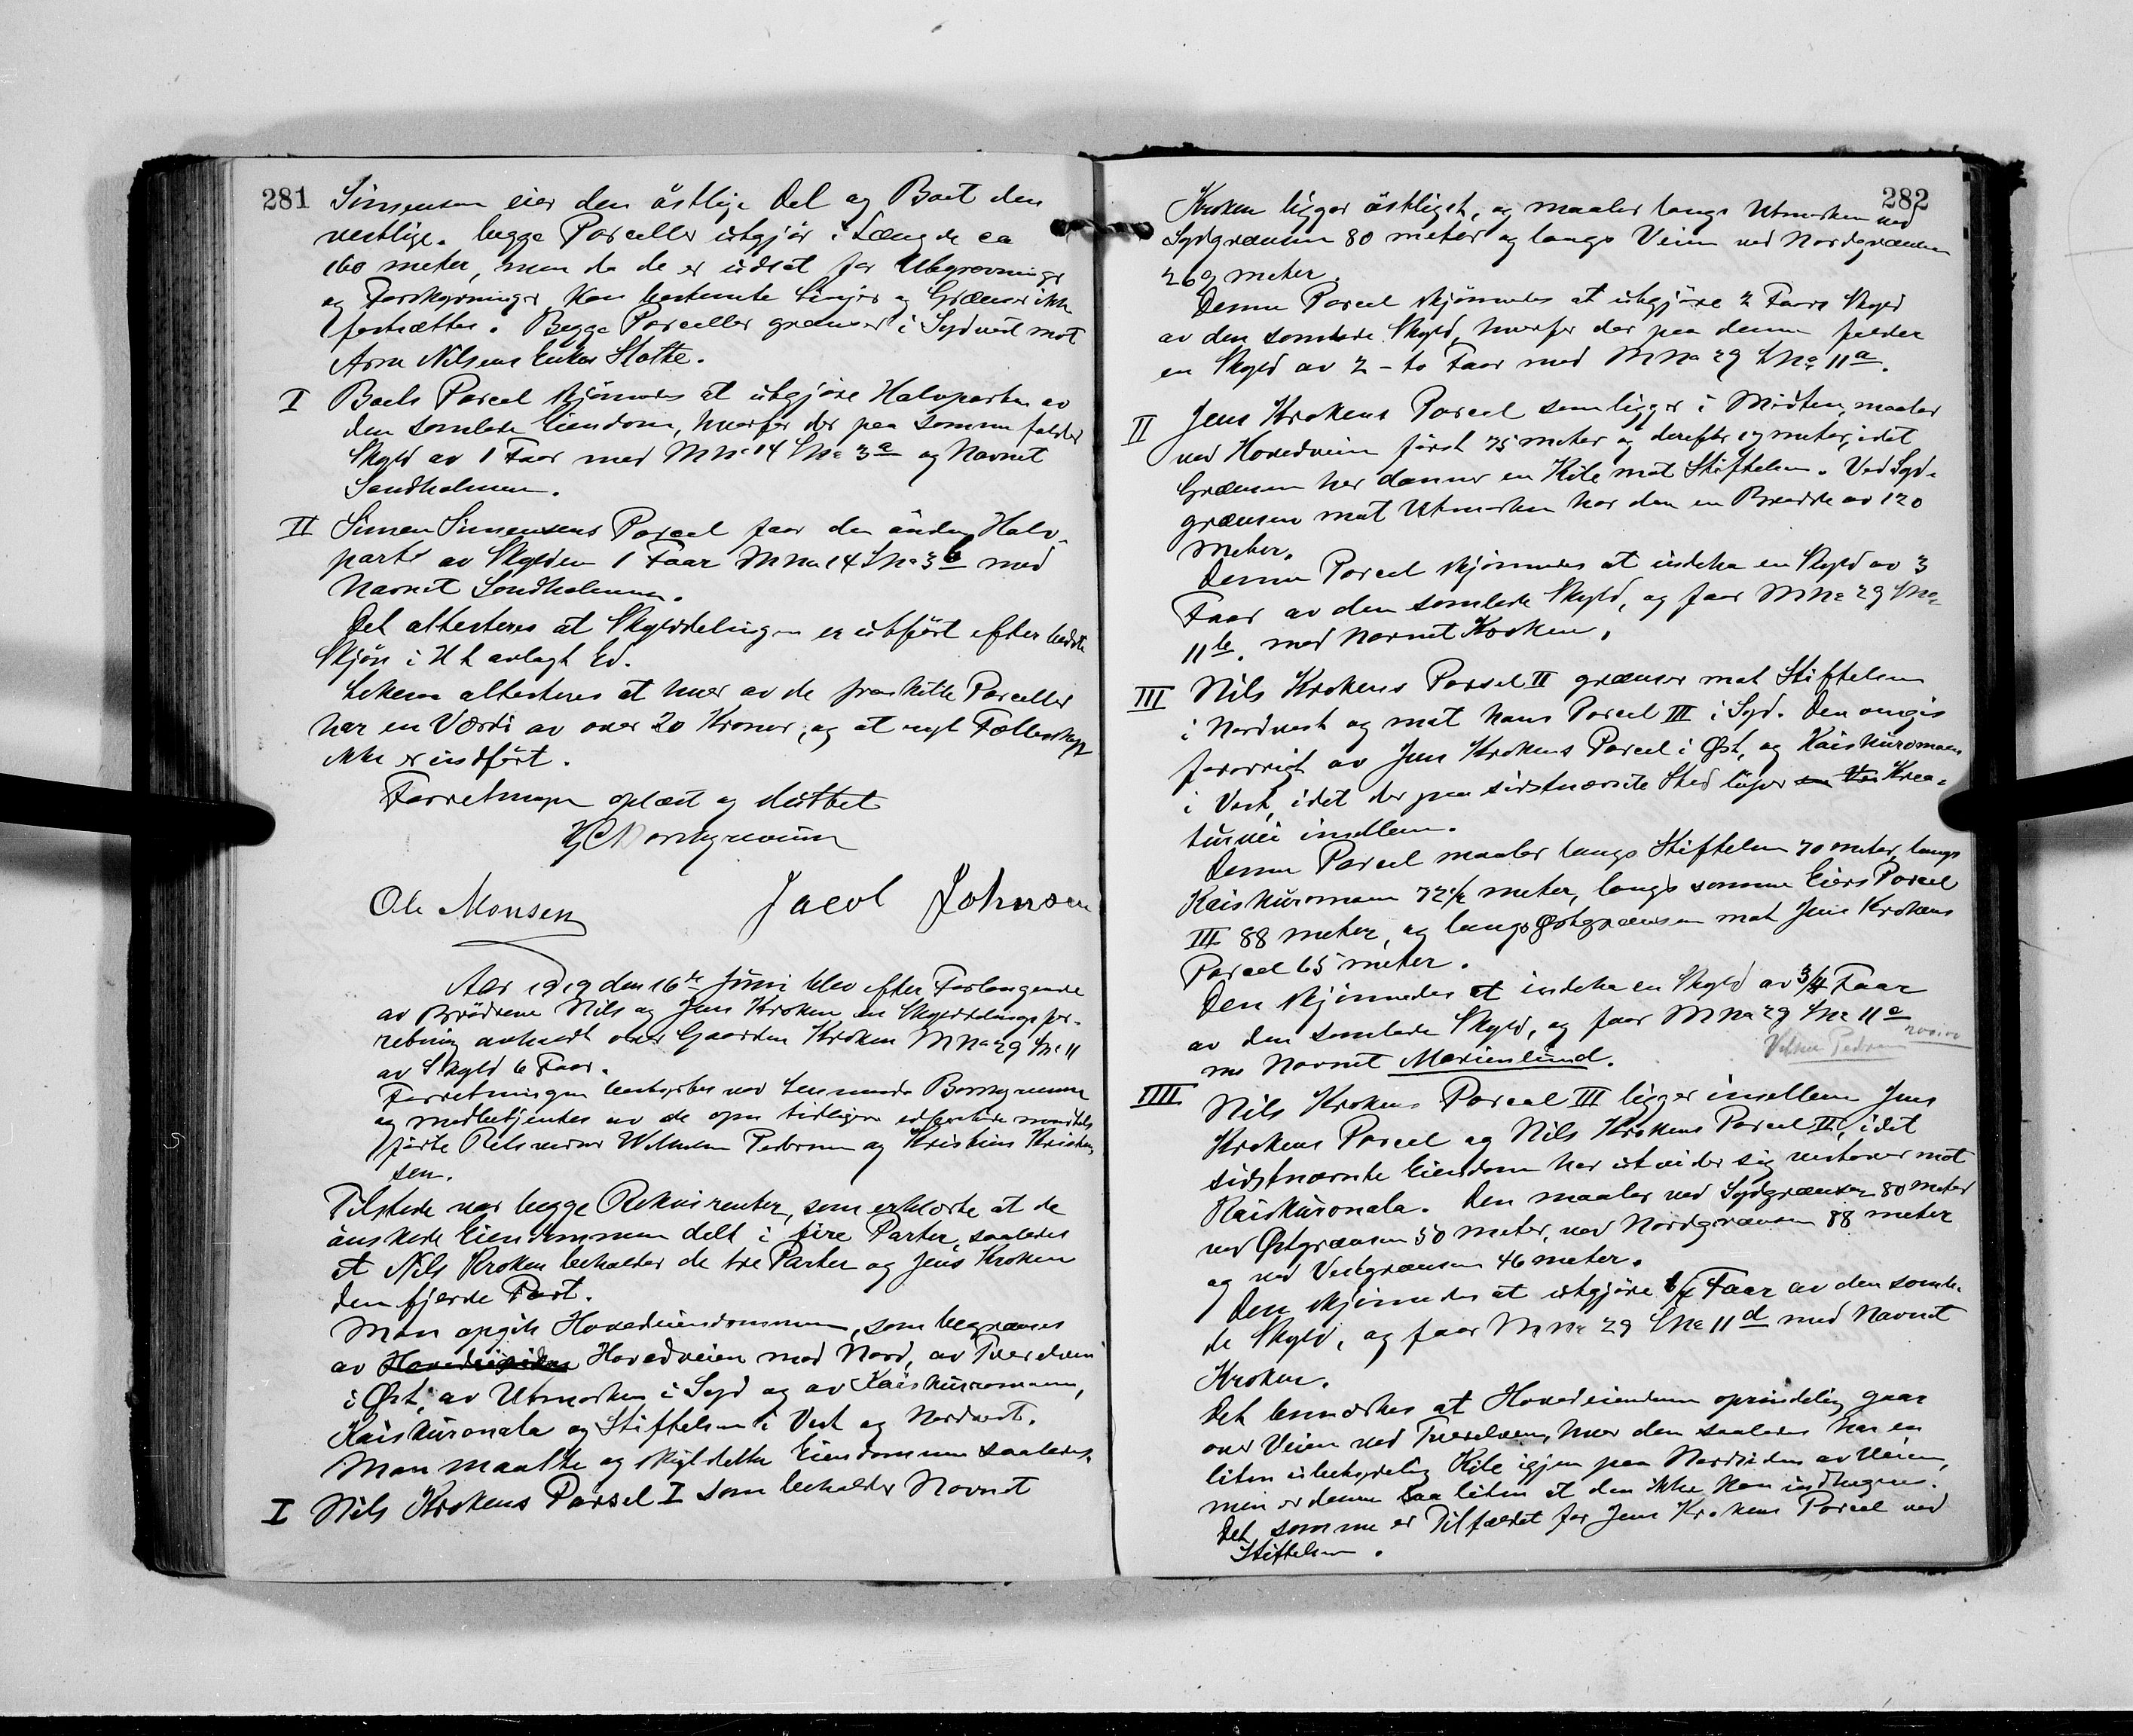 281
Simensen eier den östlige Del og Boet den
vestlige. begge Parceller utgjör i Længde ca
160 meter, men da de er utsat for Utgravninger
og Forskyvninger kan bestemte Linjer og Grænser ikke
fortsættes. Begge Parceller grænser i Sydvest mot
Arne Nilsens Enkes Slotte.
I Boets Parcel skjönnes at utgjöre Halvparten av
den samlede Eiendom, hvorfor der paa samme falder
Skyld av 1 Faar med M No 14 L No 3a og Navnet
Sandholmen.
II Simen Simensens Parcel faar den anden Halv-
part av Skylden 1 Faar M No 14 L No 3b med
Navnet Sandholmen.
Det attesteres at Skylddelingen er utfört efter bedste
Skjön i H t avlagt Ed.
Likesaa attesteres at hver av de fraskilte Parceller
har en Værdi av over 20 Kroner, og at nyt Fællesskap
ikke er indfört.
Forretningen oplæst og sluttet
Ole Monsen Jacob Johnsen
Aar 1919 den 16de Juni blev efter Forlangende
av Brödrene Nils og Jens Kroken en Skylddelingsfor-
retning avholdt over Gaarden Kroken M No 29 L No 11
av Skyld 6 Faar.
Forretningen bestyrtes ved Lensmand Borchgrevink
og medbetjentes av de opn tidligere edfæstede
Retsvidner Wilhelm Pedersen og Kristian Kristian
sen.
Tilstede var begge Rekvirenter, som erklærte at de
önskede Eiendommen delt i fire Parter, saaledes
at Nils Kroken beholder de tre Parter og Jens Kroken
den fjerde Part.
Man opgik Hovedeiendommen, som begrænses
av Hovedveien mod Nord, av Tverelven
i Öst, av Utmarken i Syd og av Kaiskuromaen,
Kaiskuronala og Stiftelsen i Vest og Nordvest.
Man maalte og skyldelte Eiendommen saaledes.
I Nils Krokens Parsel I som beholder Navnet
282
Kroken ligger östligst, og maaler langs Utmarken ved
Sydgrænsen 80 meter og langs Veien ved Nordgrænsen
269 meter.
Denne Parcel skjönnedes at utgjöre 2 Faars Skyld
av den samlede Skyld, hvorfor der paa denne falder
en Skyld av 2 - to Faar med M No 29 L No 11a.
II Jens Krokens Parcel som ligger i Midten, maaler
ved Hovedveien först 75 meter og derefter 17 meter, idet
Grænsen her danner en Kile mot Stiftelsen. Ved Syd-
grænsen mot Utmarken har den en Bredde av 120
meter.
Denne Parcel skjönnedes at indeha en Skyld av 3
Faar av den samlede Skyld, og faar M No 29 L No
11b. med Navnet Kroken.
III Nils Krokens Parsel II grænser mot Stiftelsen
i Nordvest og mot hans Parcel III i Syd. Den omgis
forövrigt av Jens Krokens Parcel i Öst, og Kaiskuromaen
i Vest, idet der paa sidstnævnte Sted ligger en Krea-
turvei imellem.
Denne Parcel maaler langs Stiftelsen 70 meter, langs
Kaiskuromaen 72½ meter, langs samme Eiers Parcel
III 88 meter, og langs Östgrænsen mot Jens Krokens
Parcel 65 meter.
Den skjönnedes at indeha en Skyld av 3/4 Faar
av den samlede Skyld, og faar M No 29 L No 11c
m Navnet Marienlund.
IIII Nils Krokens Parcel III ligger imellem Jens
Krokens Parcel og Nils Krokens Parcel II, idet
sidstnævnte Eiendom her utvider sig vestover mot
Kaiskuronala. Den maaler ved Sydgrænsen 80 meter
ved Östgrænsen 50 meter, ved Nordgrænsen 88 meter
og ved Vestgrænsen 46 meter.
Den skjönnedes at utgjöre 1/4 Faar av den samle-
de Skyld, og faar M No 29 L No 11d med Navnet
Kroken.
Det bemerkes at Hovedeiendommen oprindelig gaar
over Veien ved Tverelven, hvor den saaledes har en
liten ubetydelig Kile igjen paa Nordsiden av Veien,
men er denne saa liten at den ikke kan indhegnes.
Det samme er Tilfældet for Jens Krokens Parcel ved
Stiftelsen.